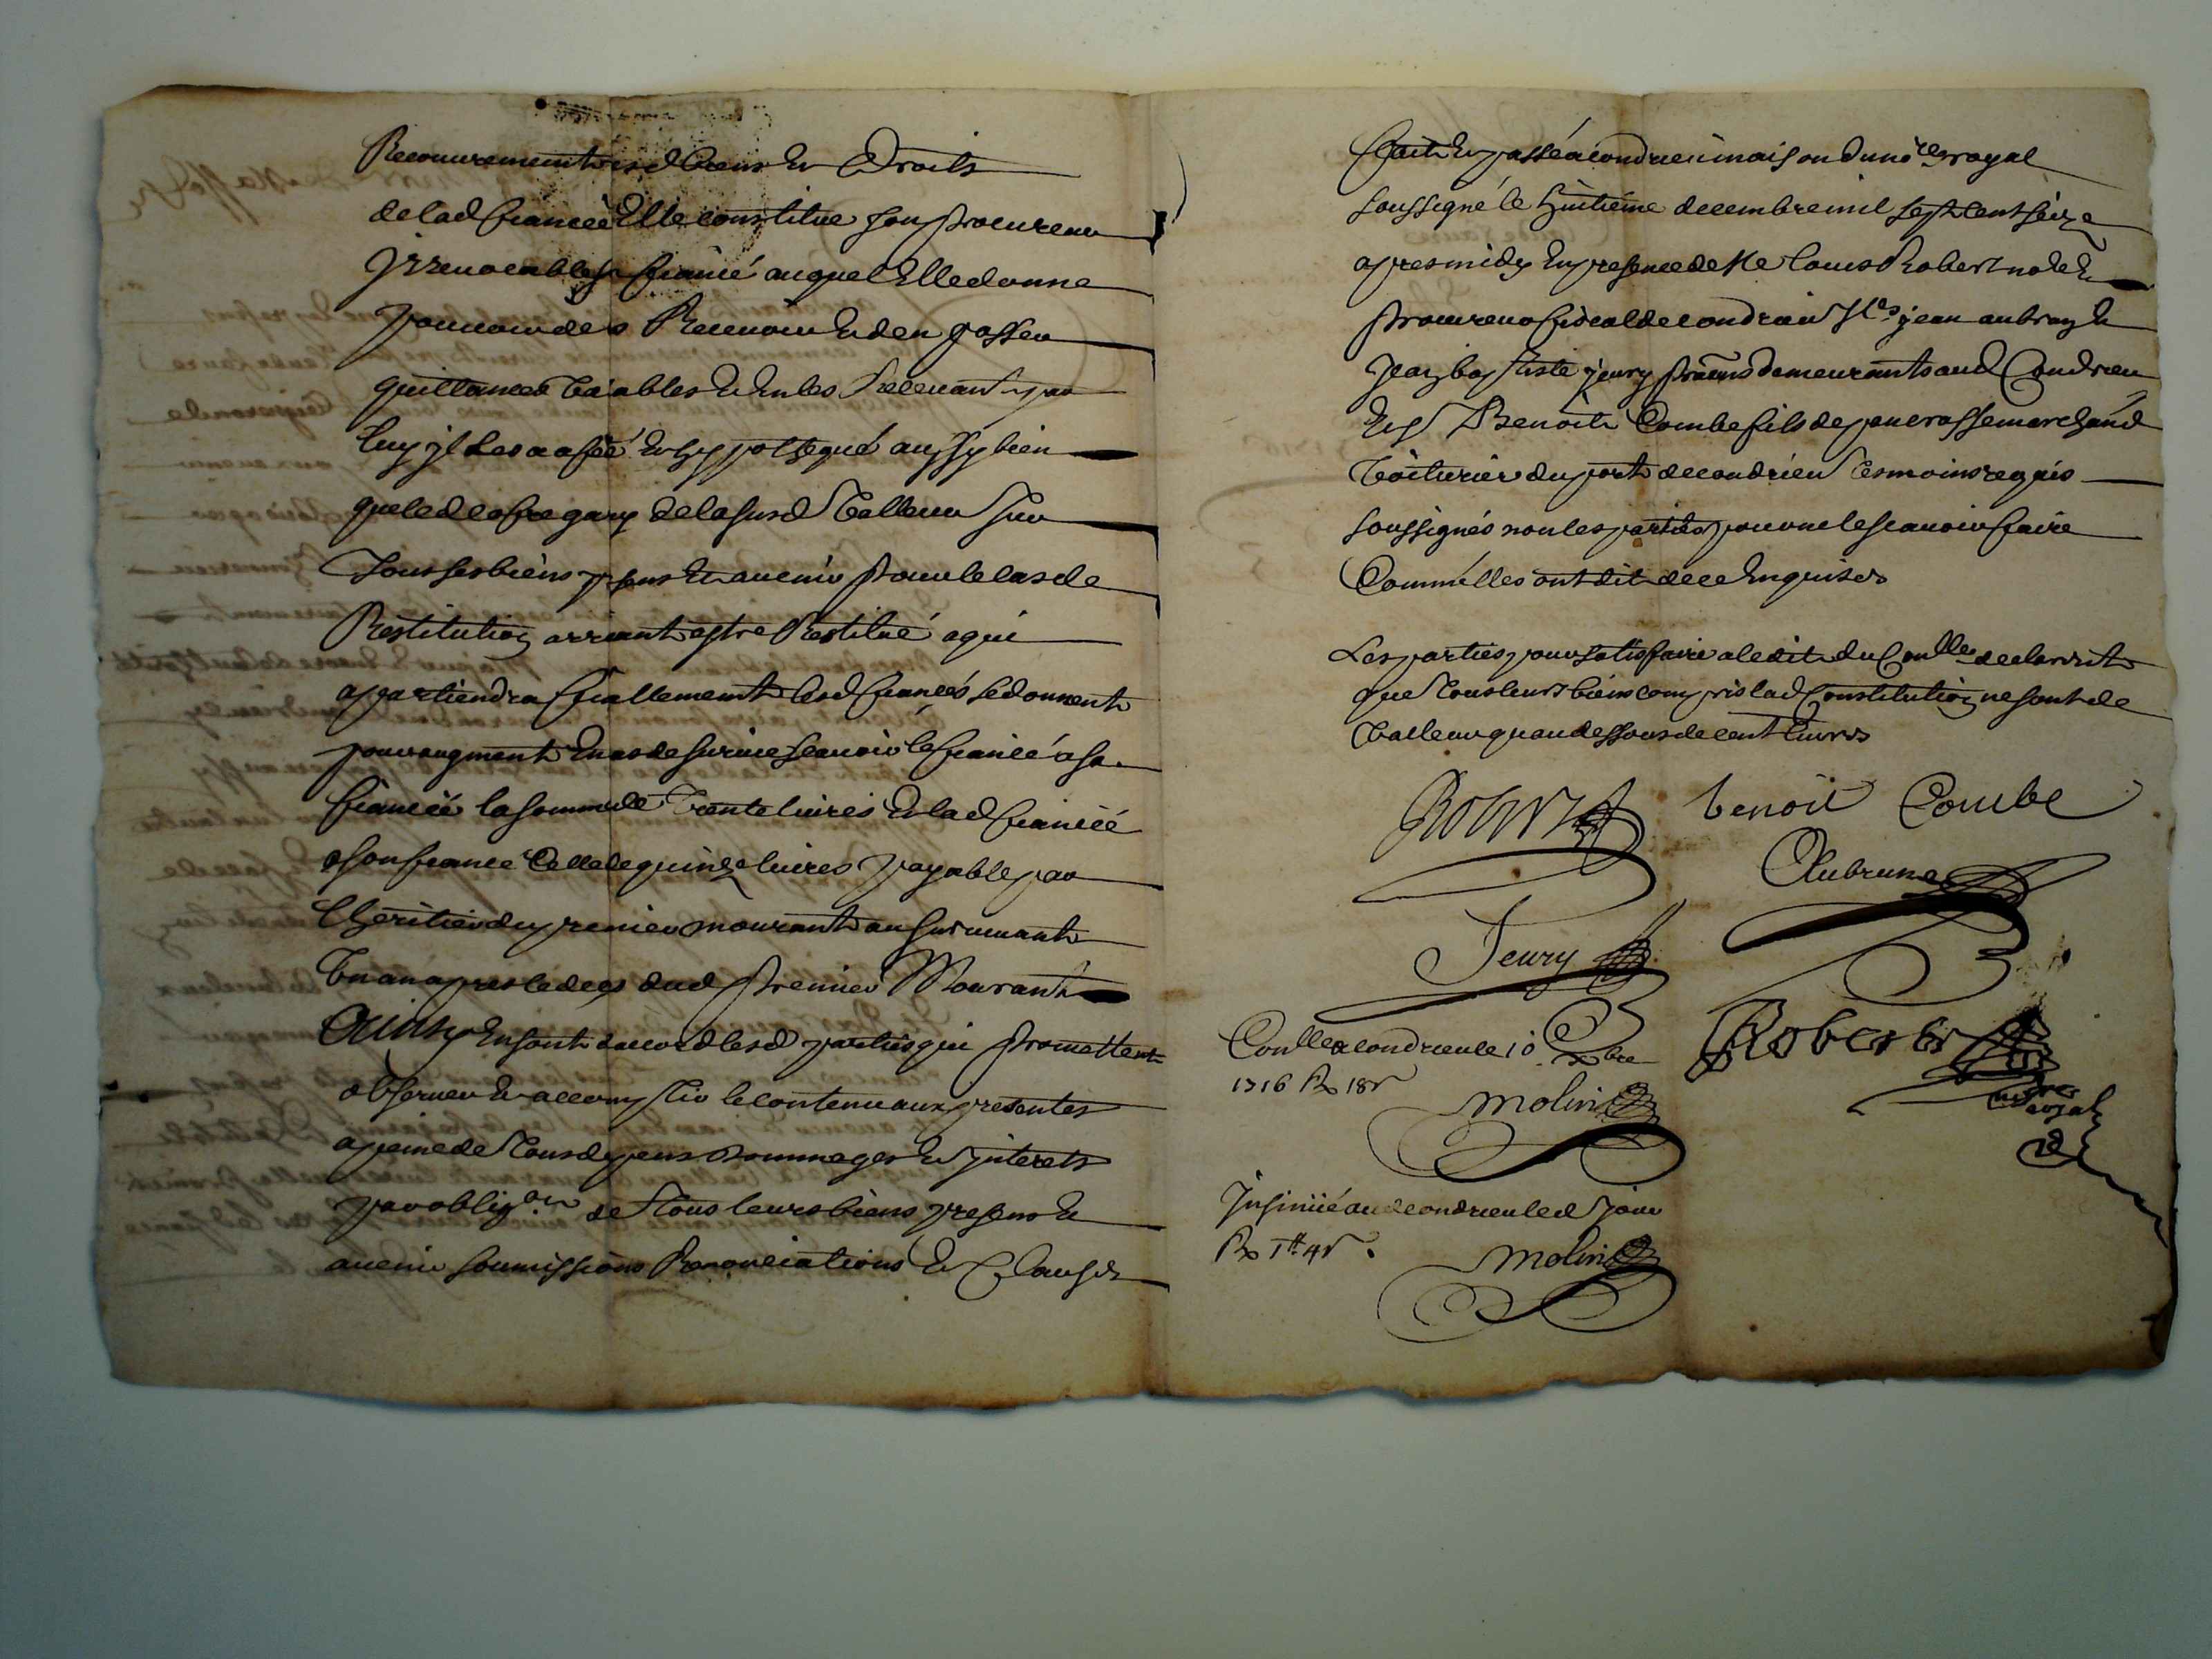 Recouurement desd biens Et Droits
de lad fiancée Elle constitue son procureur
Irreuocable le fiancé auquel Elle donne
pouuoir de Receuoir Et den passer
quittances Vallables Et En les Receuant par
luy jl les a assé Et hyppothequé aussy bien
que led de la susd Valleur sur
Tous ses biens pnts Et auenir pour le cas de
Restitution arriuant estre Restitué a qui
appartiendra finallement lesd fiancés se donnent
pour augment En cas de suruie scauoir le fiancé a sa
fiancée la somme de Trente liures Et lad fiancée
a son fiance Celle de quinze liures payable par
lheritier du premier mourant au suruiuant
Vn an apres le deces dud premier Mourant
Ainsy En sont d'accord lesd parties qui promettent
obseruer Et accomplir le contenu aux presentes
a peine de Tous depens dommages Et jnterets
par obligon de Tous leurs biens presens Et
auenir soumissions Renonciations Et Clauses
faict Et passé a condrieu maison du nore royal
soussigné le huitième decembre mil sept cent seize
apres midy En presence de Me louis Robert nore Et
procureur fiscal de condrieu Srs jean aubrun Et
Jean baptiste jeury pratiens demeurants aud Condrieu
Et Sr Benoit Combe fils de marchand
Voiturier du port de condrieu Tesmoins requis
soussignés non les parties pour ne le scauoir faire
Comm'elles ont dit de ce Enquises
Les parties pour satisfaire a ledit du Conlle declarent
que Tous leurs biens compris lad Constitution ne sont de
Valleur qu'au dessous de cent liures
Robert benoit Combe
Aubrun
Jeury
Conllé a condrieu le 10 xbre
1716 Rx 18s
Molin
Robert
nore royal
Jnsinüé aud condrieu led jour
Rx 1tt 4s
Molin